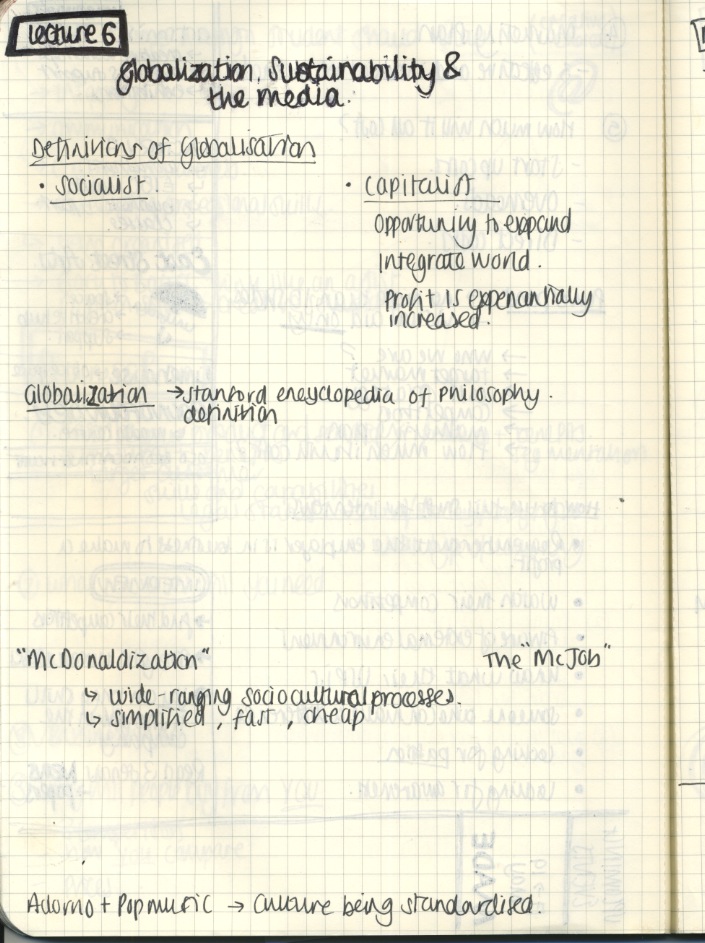 Lecture 6
Globalization, Sustainability &
the media.
Definitions of Globalisation
• Socialist.
• Capitalist
Opportunity to expand
Integrate world.
Profit is expenantially
increased.
Globalization → stanford encyclopedia of Philosophy.
definition
"McDonaldization"
The "McJob"
↳ wide-ranging sociocultural processes.
↳ simplified, fast, cheap
Adorno + Pop music → Culture being standardised.